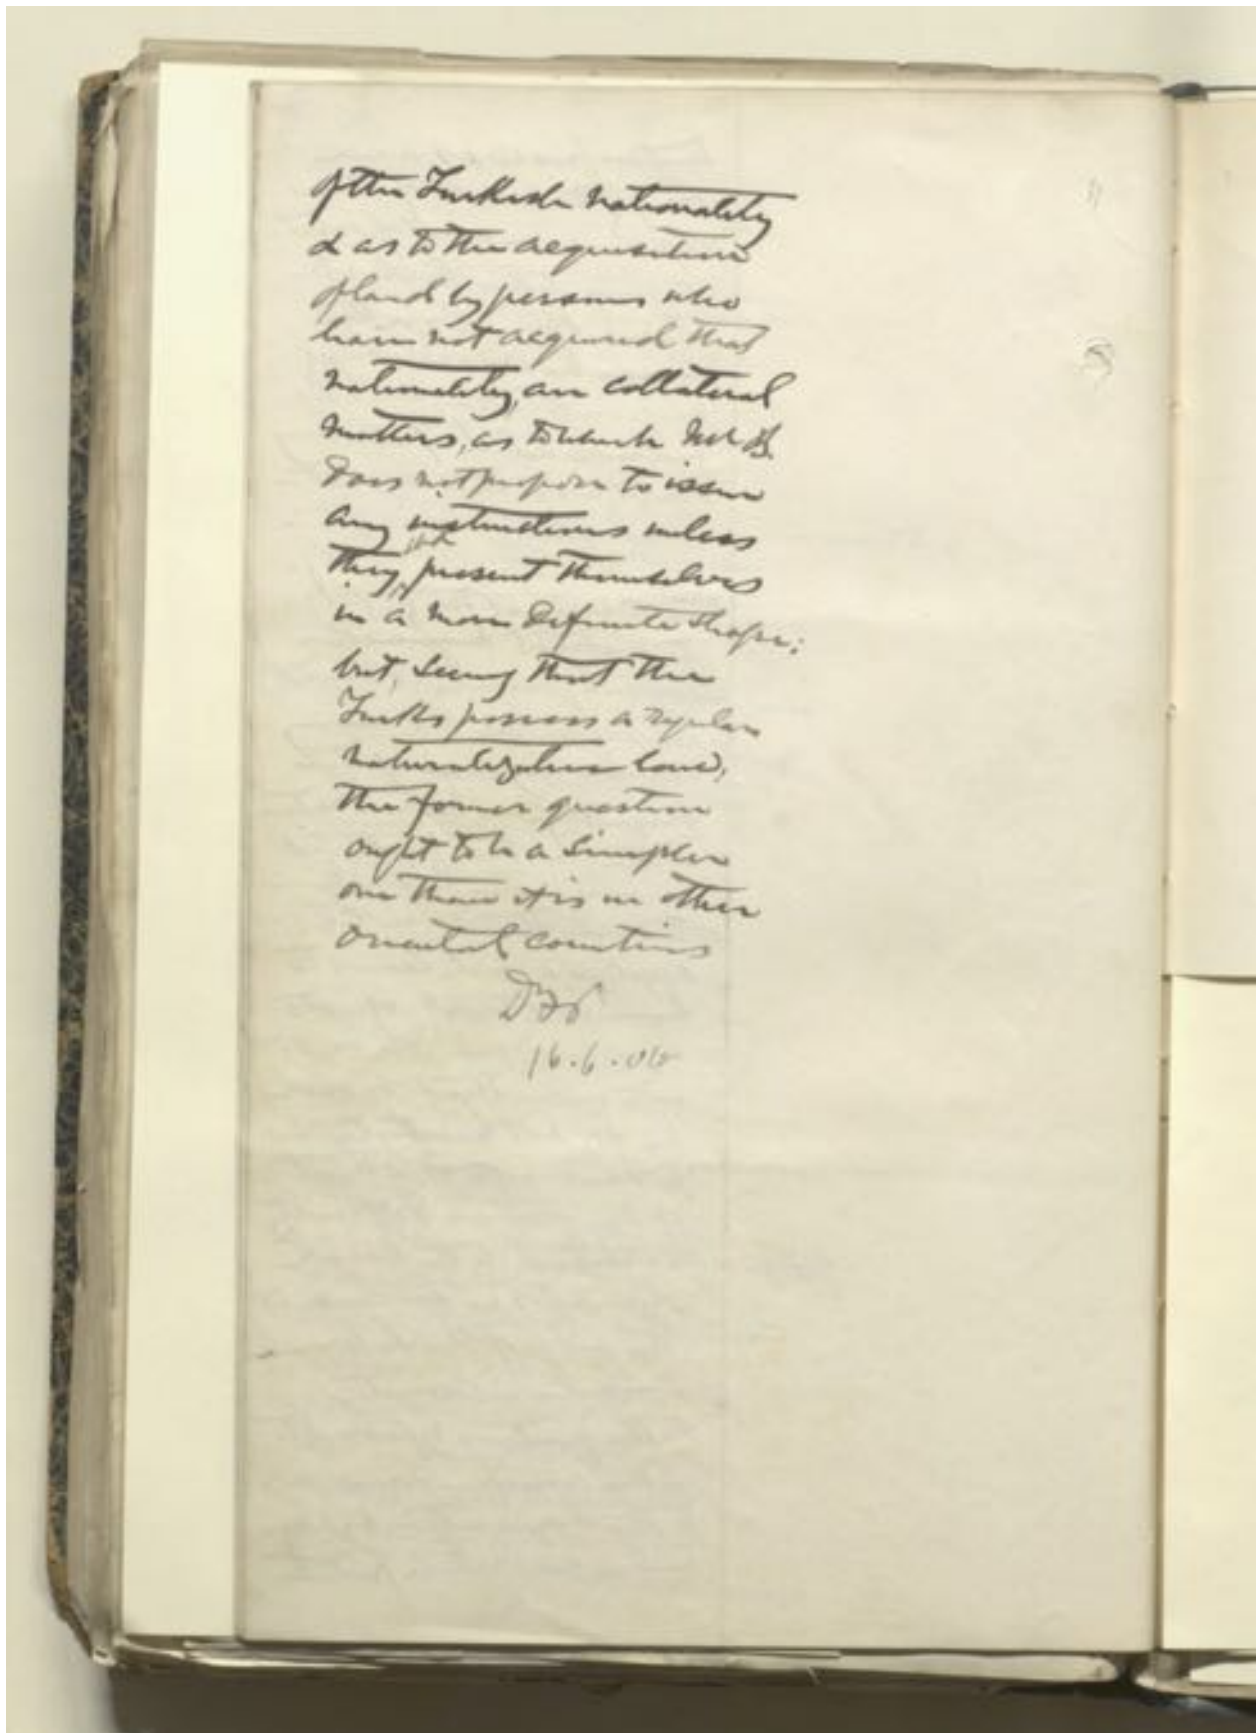 of the Turkish nationality
& as to the acquisition
of land by persons who
have not acquired that
nationality, are collateral
matters, as to which
does not propose to issue
any instructions unless
they present themselves
in a more definite shape;
but, seeing that the
Turks possess a regular
naturalization law,
the former question
ought to be a simpler
one than it is in other
oriental countries
16.6.06